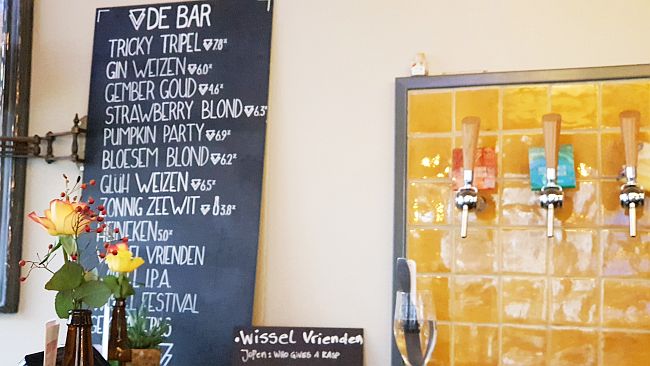 DE BAR
TRICKY TRIPEL 7.8%
GIN WEIZEN 6.0%
GEMBER GOUD 4.6%
STRAWBERRY BLOND 6.3%
PUMPKIN PARTY 6.9%
BLOESEM BLOND 6.2%
GLÜH WEIZEN 6.5%
ZONNIG ZEEWIT 3.8%
HEINEKEN 5.0%
VRIENDEN
I.P.A.
FESTIVAL
• Wissel Vrienden
JOPEN: WHO GIVES A RASP